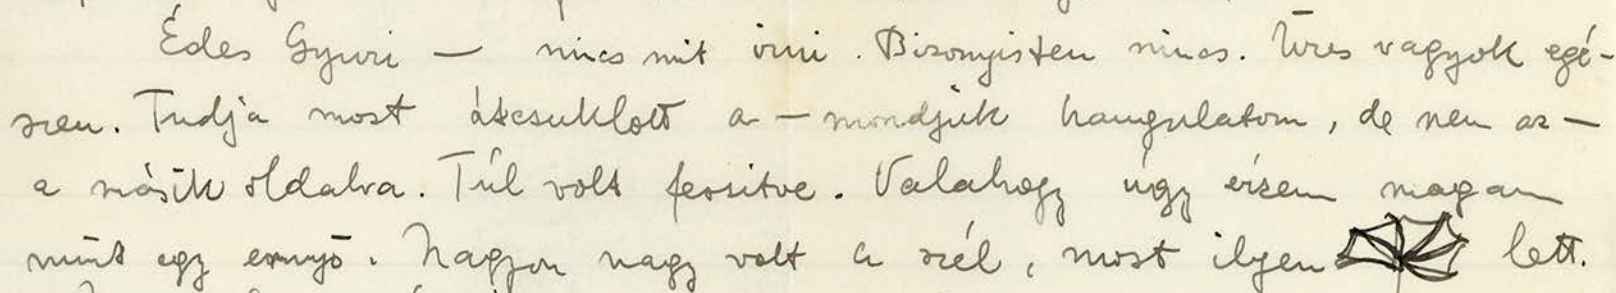 Édes Gyuri — nincs mit írni. Bizonyisten nincs. Üres vagyok egé-
szen. Tudja most átcsuklott a — mondjuk hangulatom, de nem az —
a másik oldalra. Túl volt feszitve. Valahogy úgy érzem magam
mint egy ernyő. Nagyon nagy volt a szél, most ilyen lett.